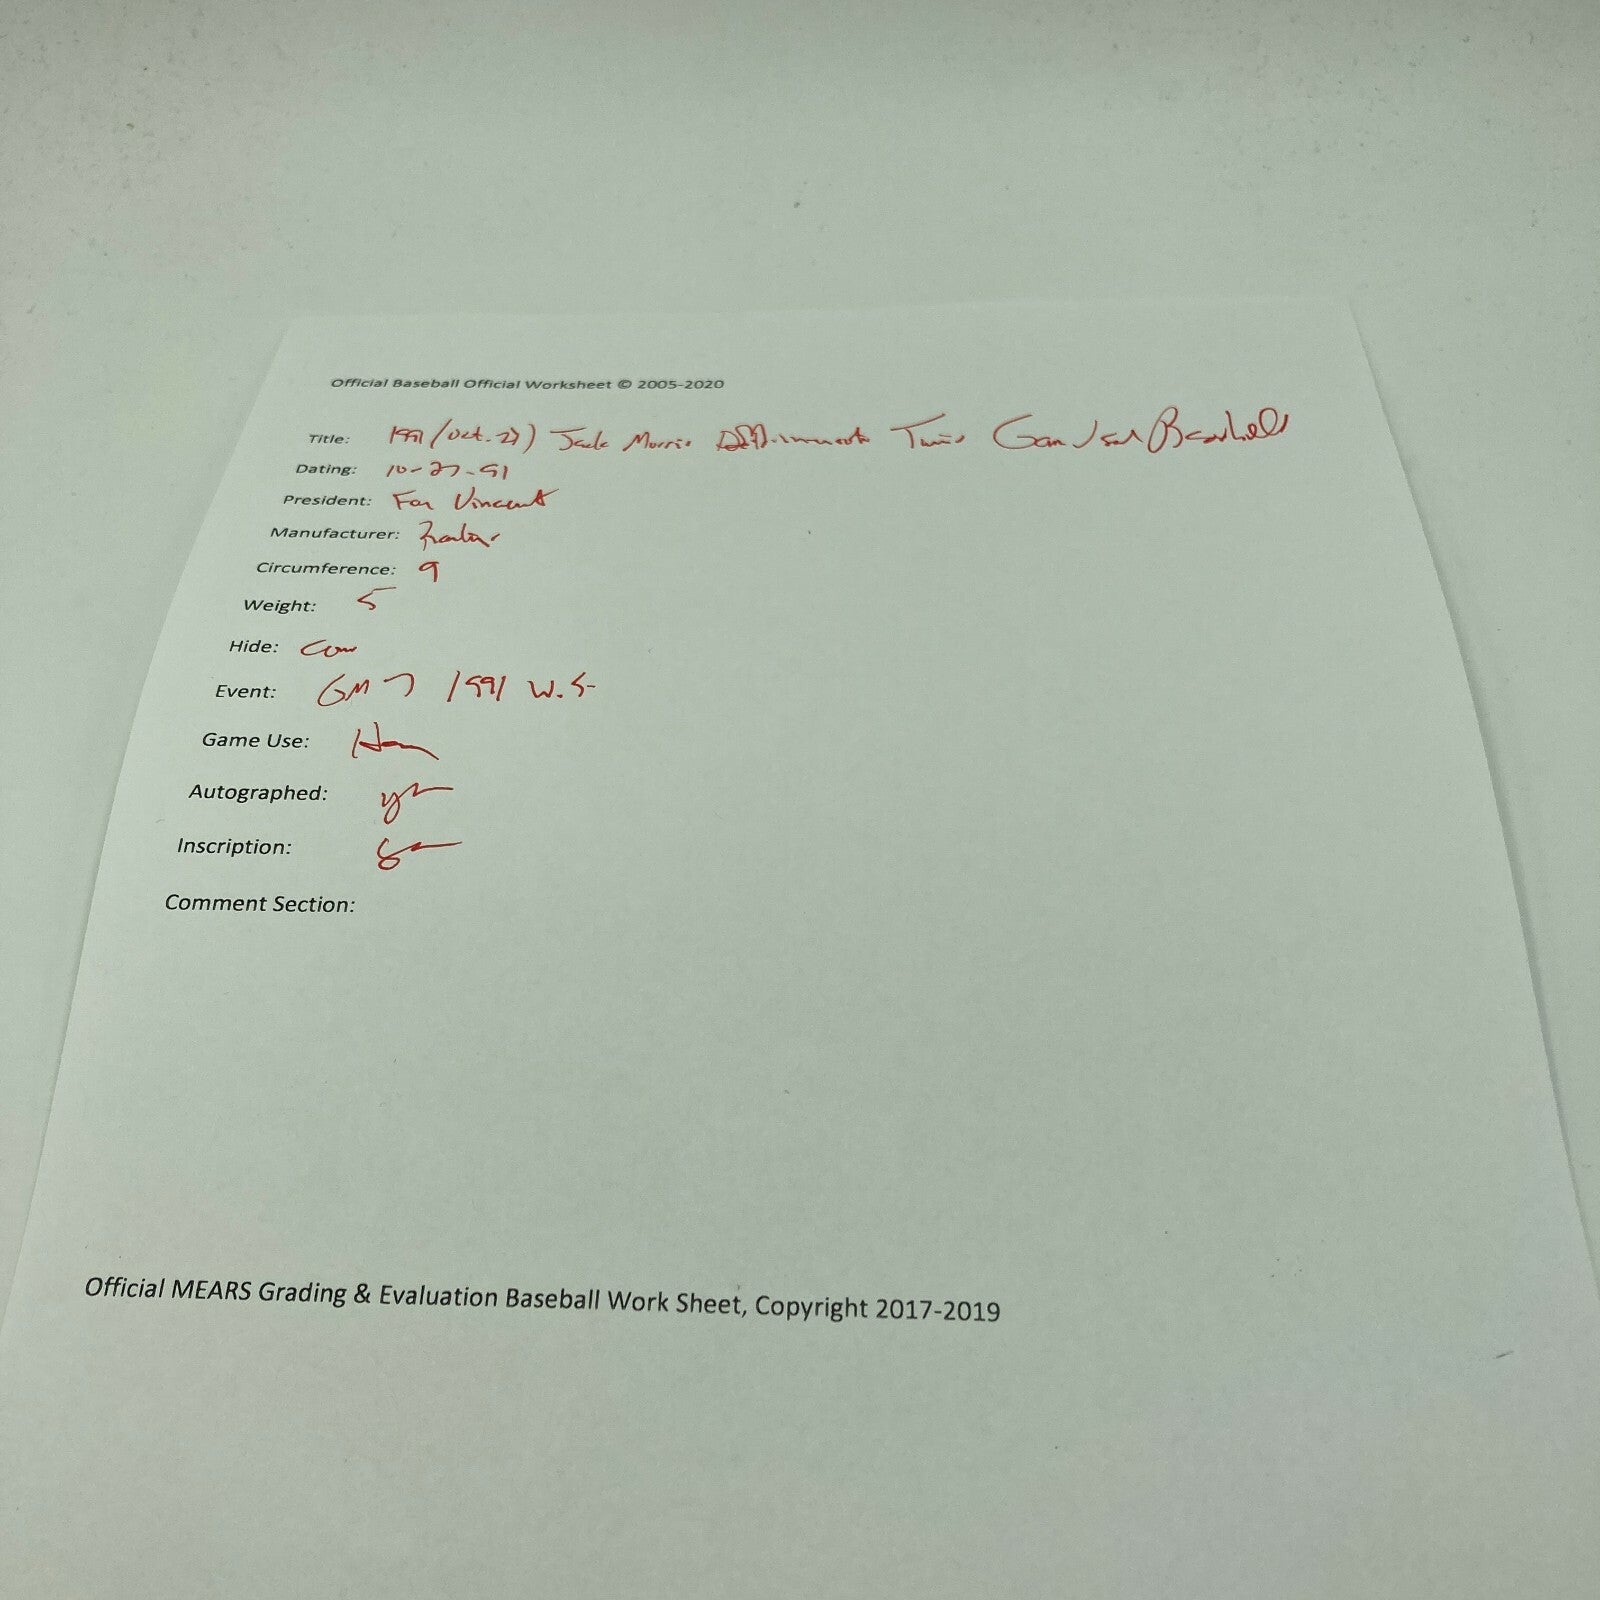 Official Baseball Official Worksheet © 2005-2020
Title: 1991 (Oct. 27) Jack Morris Minnesota Twins Game Used Baseball
Dating: 10-27-91
President: Fay Vincent
Manufacturer: Rawlings
Circumference: 9
Weight: 5
Hide: Cow
Event: GM 7 1991 W.S.
Game Use: Heavy
Autographed: yes
Inscription:
Comment Section:
Official MEARS Grading & Evaluation Baseball Work Sheet, Copyright 2017-2019